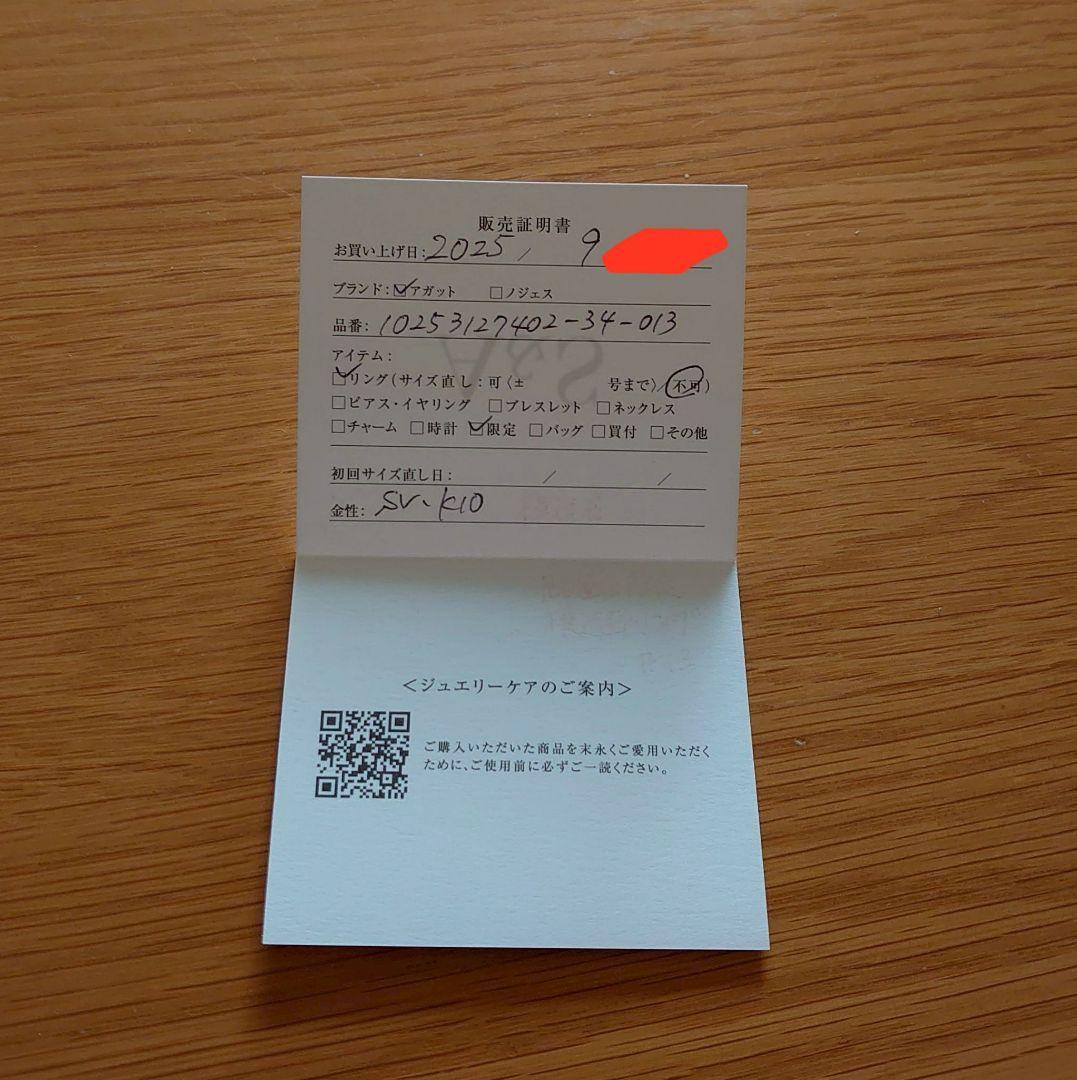 販売証明書
お買い上げ日: 2025 / 9
ブランド: ☑アガット □ノジェス
品番: 10253127402-34-013
アイテム:
☑リング(サイズ直し: 可〈± 号まで〉/不可)
□ピアス・イヤリング □ブレスレット □ネックレス
□チャーム □時計 ☑限定 □バッグ □買付 □その他
初回サイズ直し日: / /
金性: SV、K10
<ジュエリーケアのご案内>
ご購入いただいた商品を末永くご愛用いただく
ために、ご使用前に必ずご一読ください。